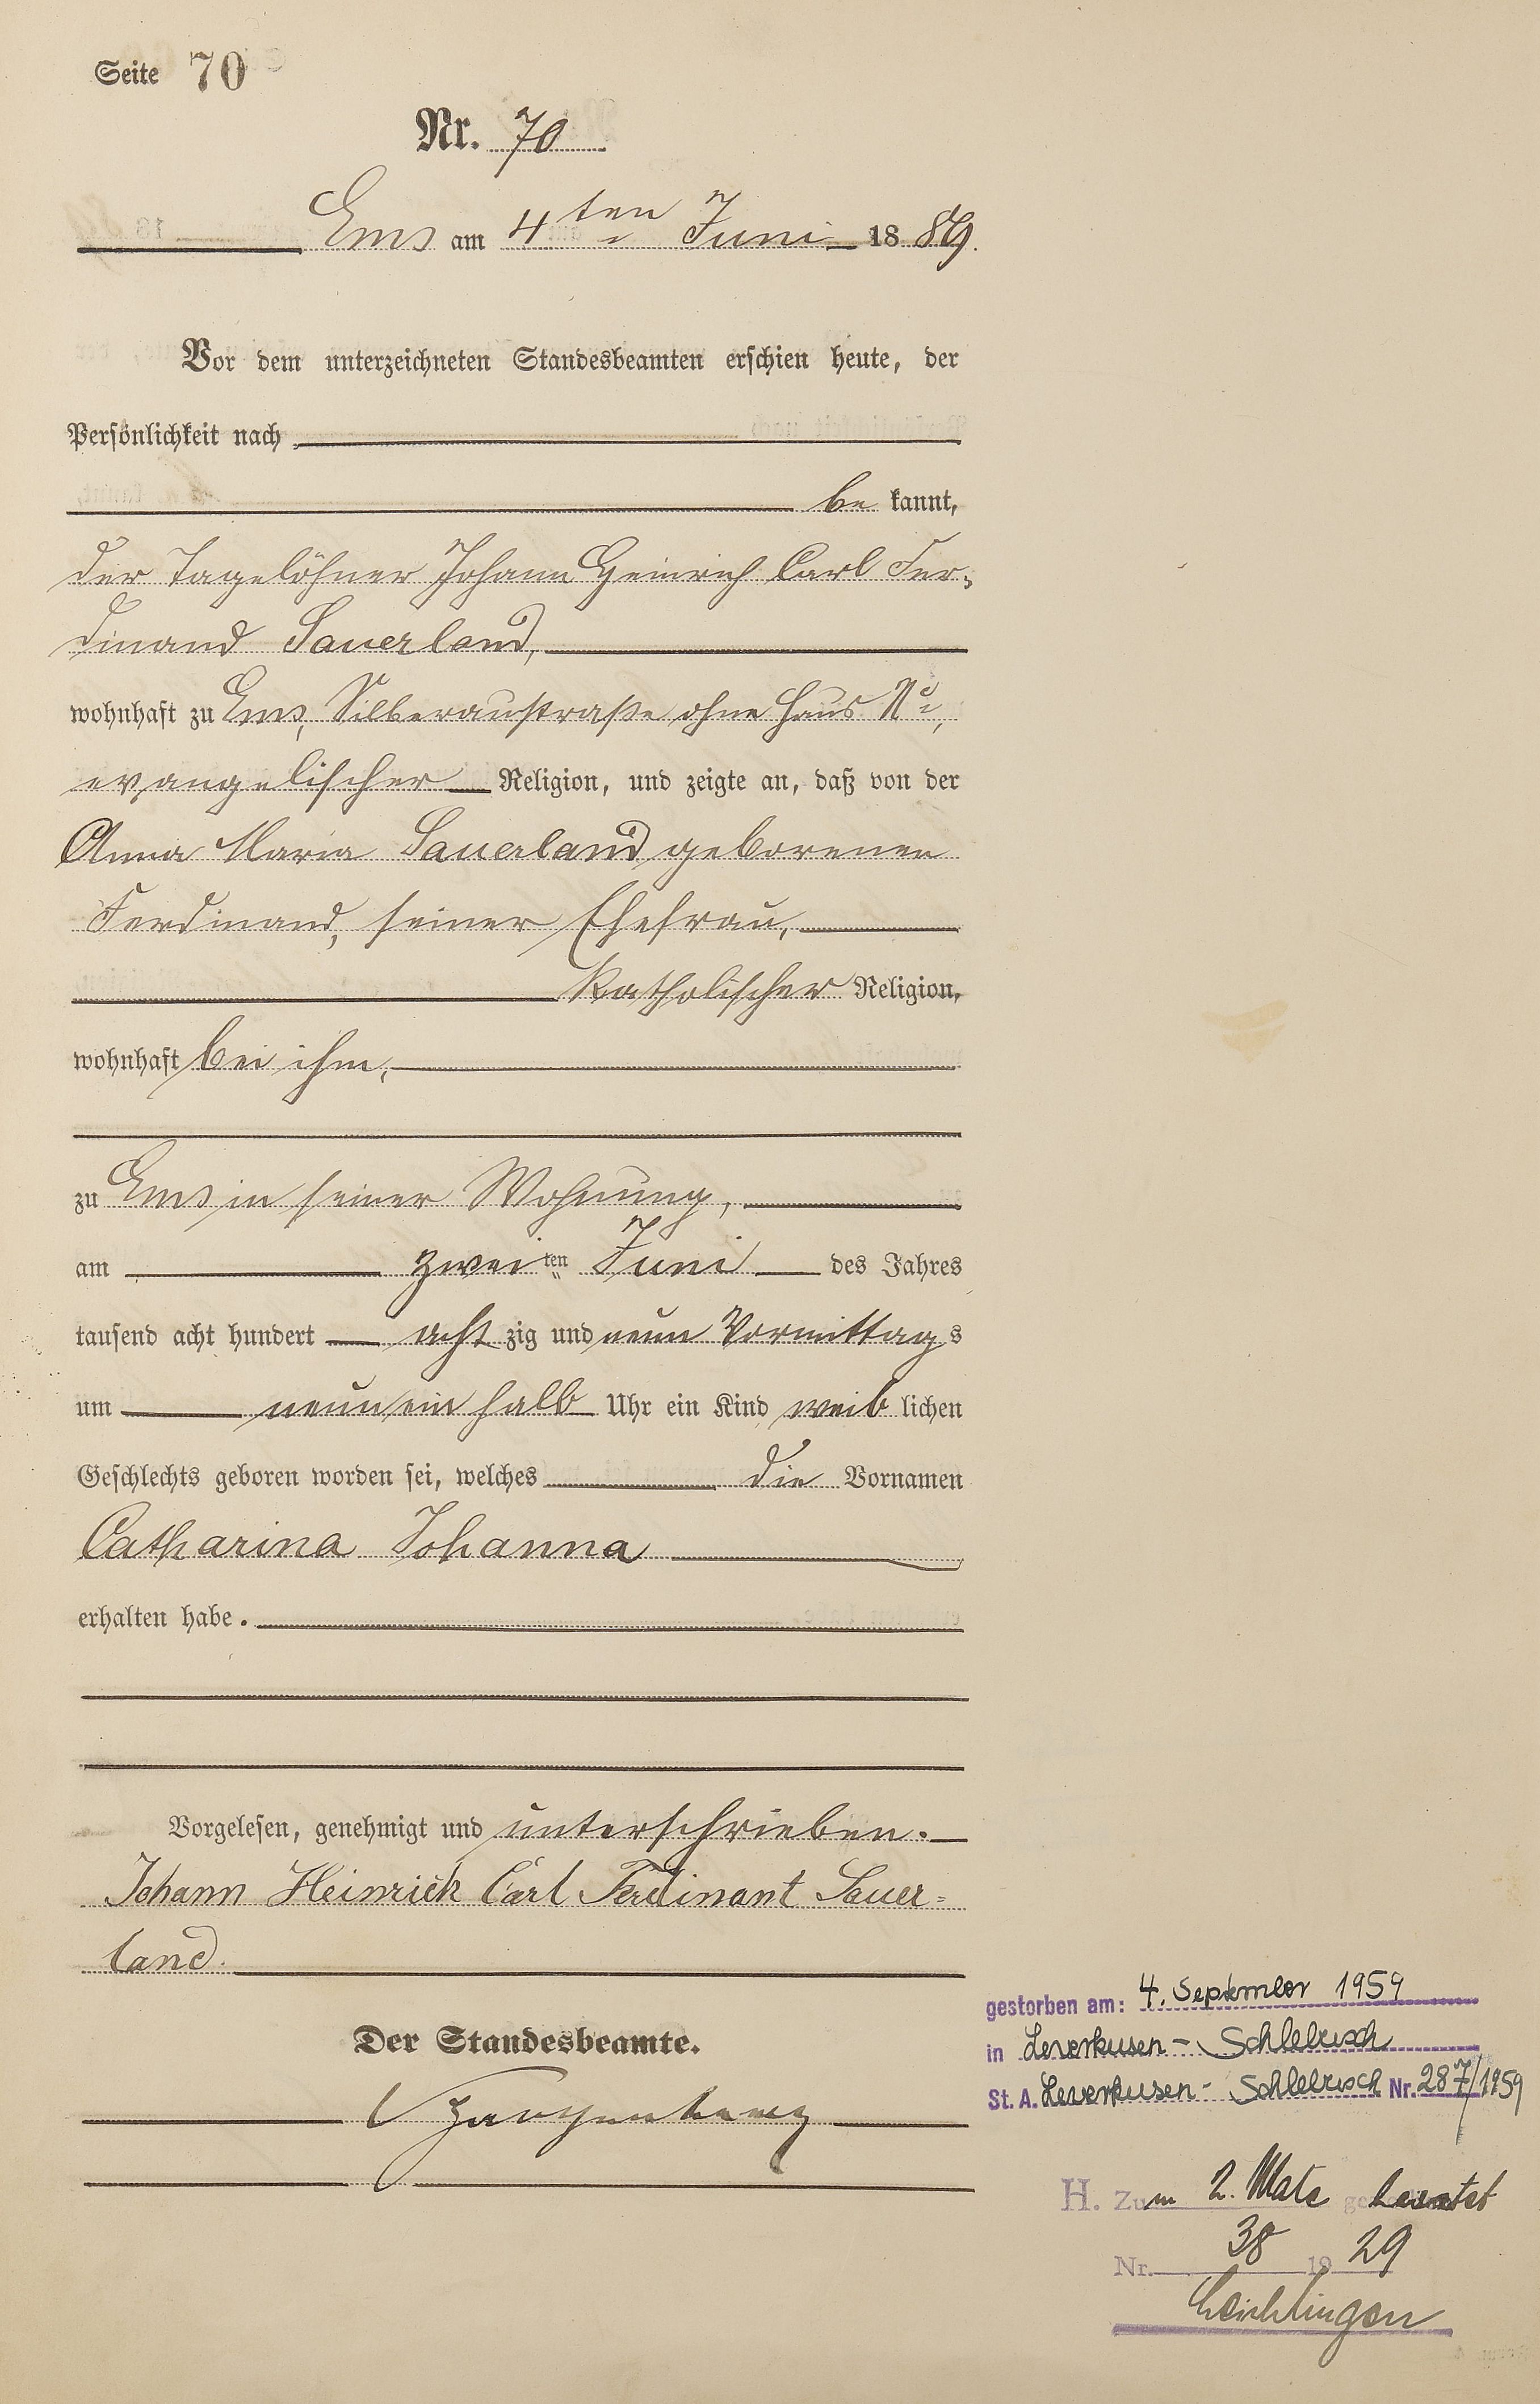 Seite 70
Nr. 70
Ems am 4ten Juni 1889.
Vor dem unterzeichneten Standesbeamten erschien heute, der
Persönlichkeit nach
be kannt,
der Tagelöhner Johann Heinrich Carl Fer-
dinand Sauerland,
wohnhaft zu Ems, Silberaustraße ohne Haus No,
evangelischer Religion, und zeigte an, daß von der
Anna Maria Sauerland geborenen
Ferdinand, seiner Ehefrau,
katholischer Religion,
wohnhaft bei ihm,
zu Ems in seiner Wohnung,
am zweiten Juni des Jahres
tausend acht hundert acht zig und neun Vormittags
um neun ein halb Uhr ein Kind weib lichen
Geschlechts geboren worden sei, welches die Vornamen
Catharina Johanna
erhalten habe.
Vorgelesen, genehmigt und unterschrieben.
Johann Heinrich Carl Ferdinant Sauer=
land.
Der Standesbeamte.
gestorben am: 4. September 1959
in Leverkusen - Schlebusch
St. A. Leverkusen - Schlebusch Nr. 287/1959
H. Zum 2. Male geheiratet
Nr. 38 1929
Leichlingen